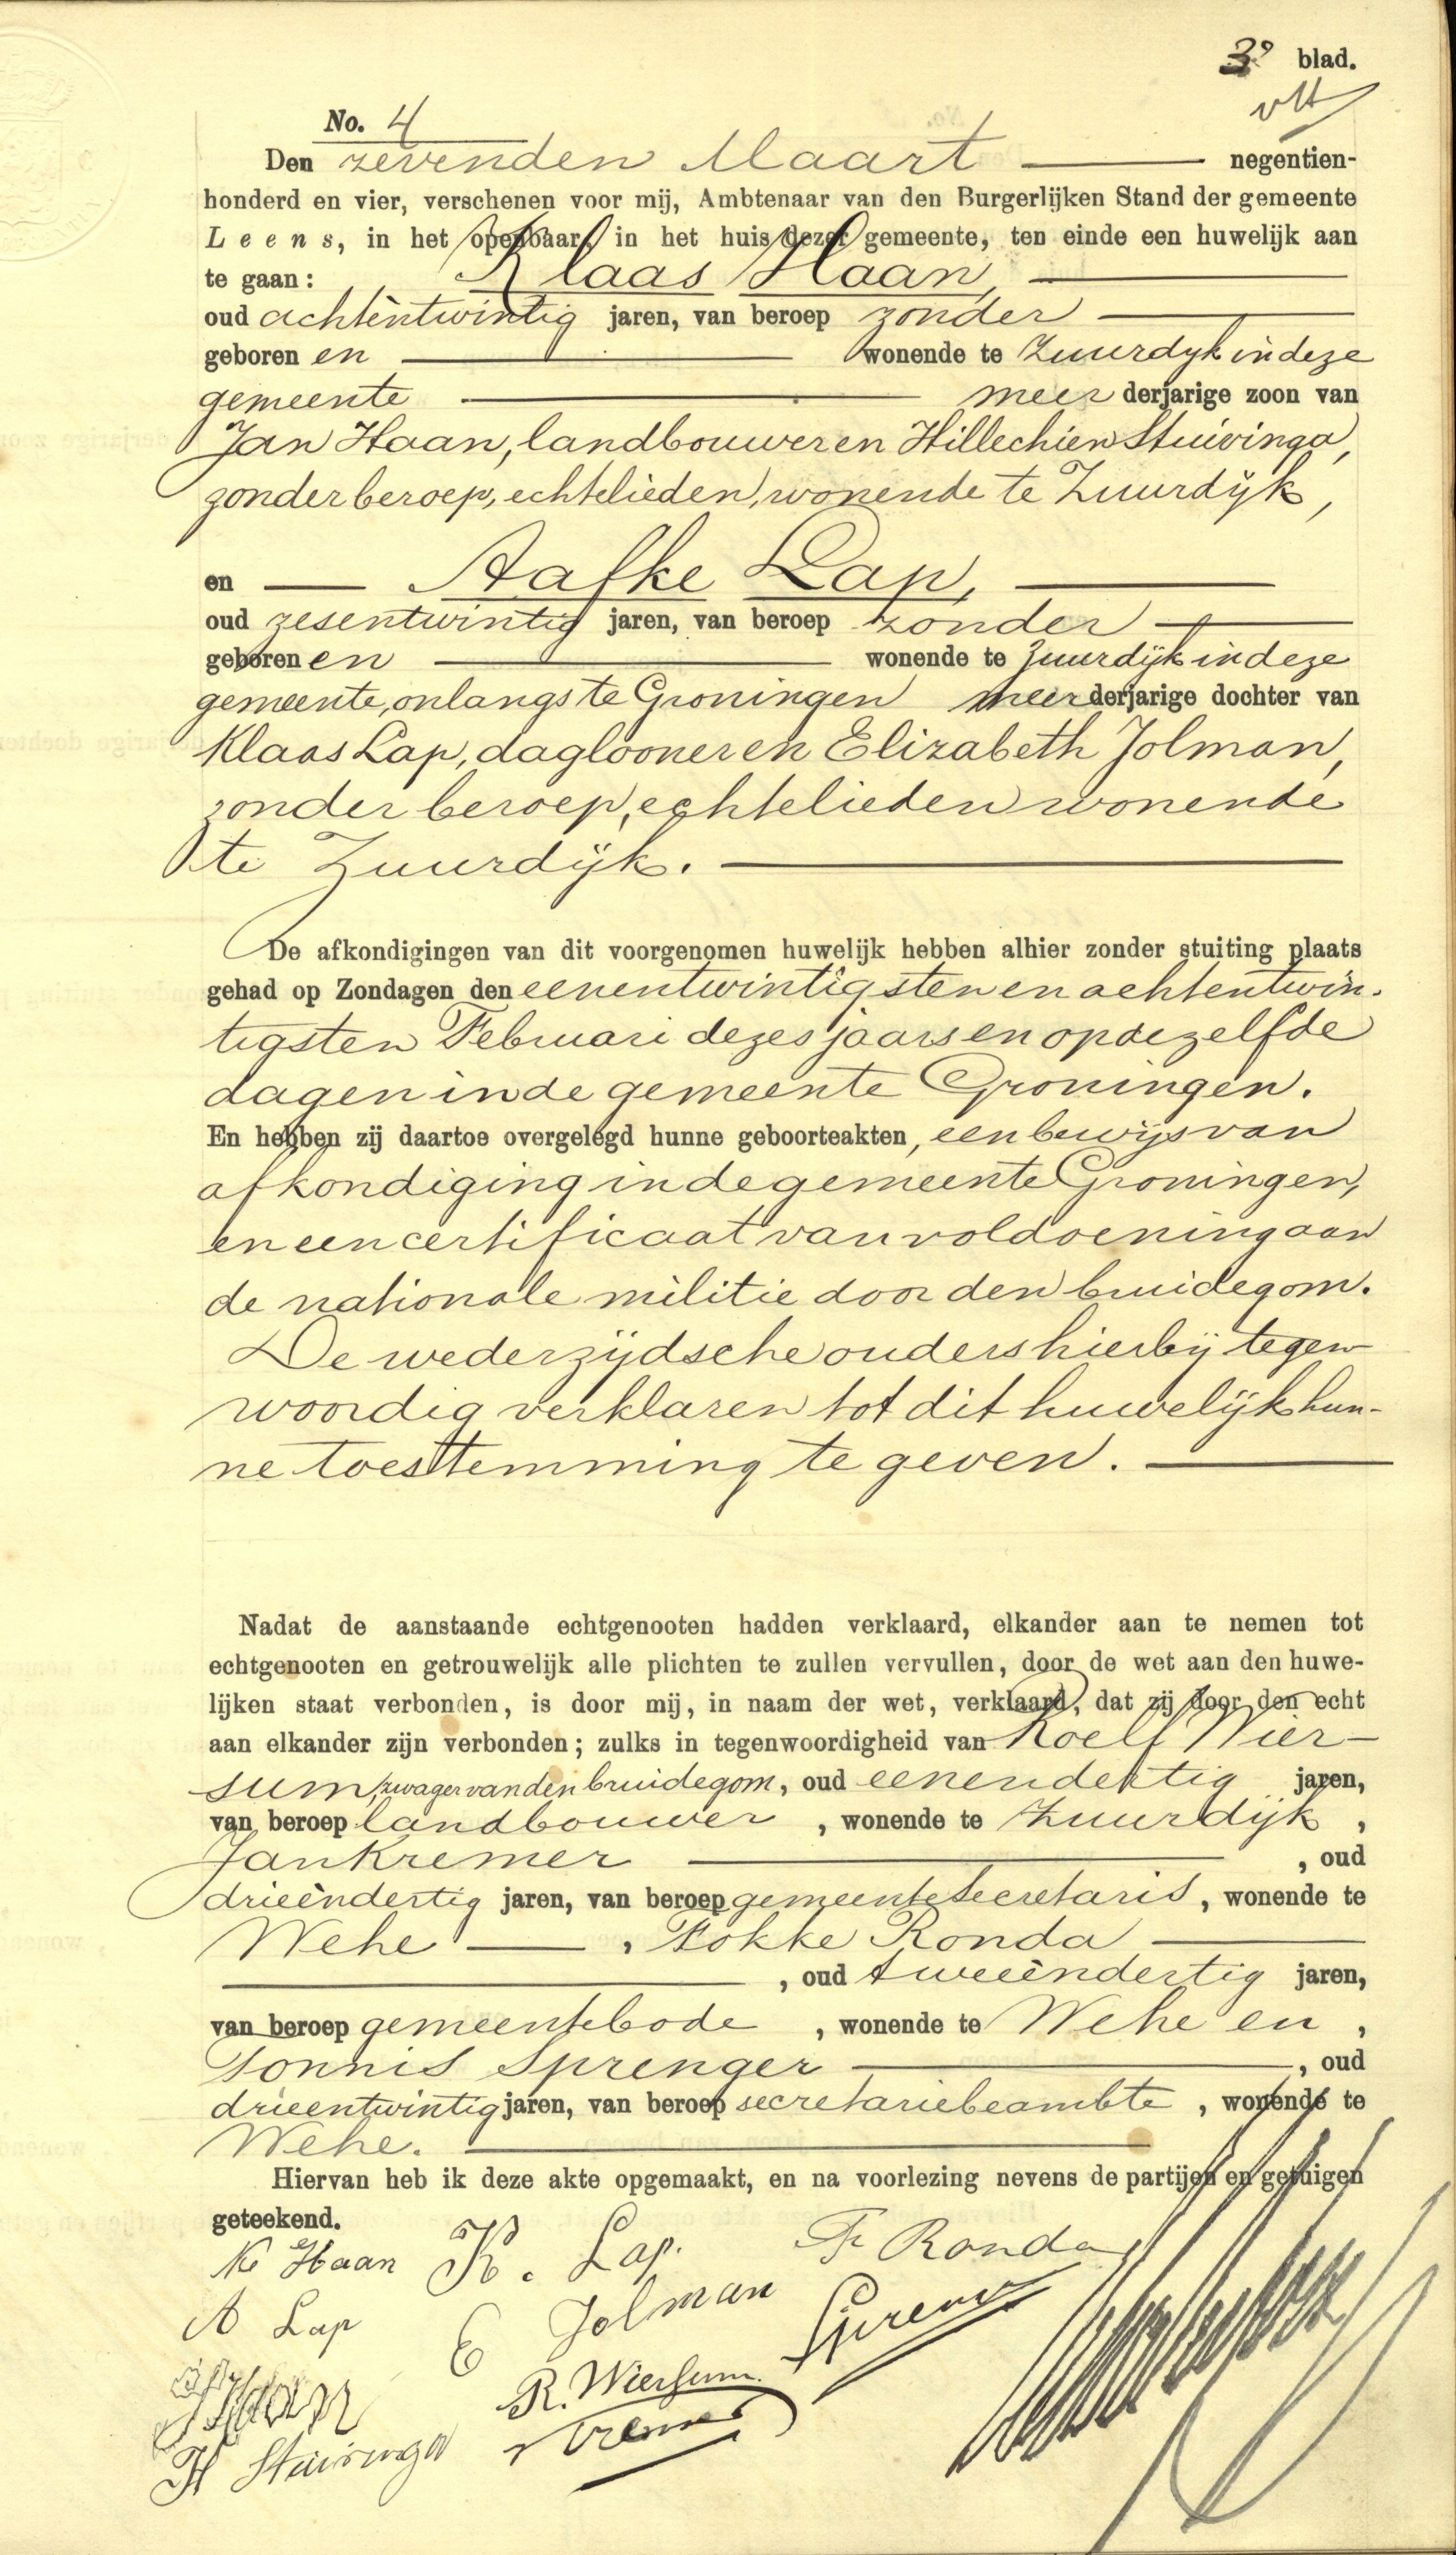 3e blad.
No. 4
Den zevenden Maart negentien-
honderd en vier, verschenen voor mij, Ambtenaar van den Burgerlijken Stand der gemeente
Leens, in het openbaar, in het huis dezer gemeente, ten einde een huwelijk aan
te gaan: Klaas Haan,
oud achtentwintig jaren, van beroep zonder
geboren en wonende te Zuurdijk in deze
gemeente meer derjarige zoon van
Jan Haan, landbouwer en Hillechien Stuivinga,
zonder beroep, echtelieden, wonende te Zuurdijk,
en Aafke Lap,
oud zesentwintig jaren, van beroep zonder
geboren en wonende te Zuurdijk in deze
gemeente, onlangs te Groningen meer derjarige dochter van
Klaas Lap, daglooner en Elizabeth Jolman,
zonder beroep, echtelieden wonende
te Zuurdijk.
De afkondigingen van dit voorgenomen huwelijk hebben alhier zonder stuiting plaats
gehad op Zondagen den eenentwintigsten en achtentwin-
tigsten Februari dezes jaars en op dezelfde
dagen in de gemeente Groningen.
En hebben zij daartoe overgelegd hunne geboorteakten, een bewijs van
afkondiging in de gemeente Groningen,
en een certificaat van voldoening aan
de nationale militie door den bruidegom.
De wederzijdsche ouders hierbij tegen
woordig verklaren tot dit huwelijk hun-
ne toestemming te geven.
Nadat de aanstaande echtgenooten hadden verklaard, elkander aan te nemen tot
echtgenooten en getrouwelijk alle plichten te zullen vervullen, door de wet aan den huwe-
lijken staat verbonden, is door mij, in naam der wet, verklaard, dat zij door den echt
aan elkander zijn verbonden; zulks in tegenwoordigheid van Roelf Wier-
sum, zwager van den bruidegom, oud eenendertig jaren,
van beroep landbouwer, wonende te Zuurdijk,
Jan Kremer, oud
drieëndertig jaren, van beroep gemeentesecretaris, wonende te
Wehe, Fokke Ronda
, oud tweeëndertig jaren,
van beroep gemeentebode, wonende te Wehe en,
Tonnis Sprenger, oud
drieentwintig jaren, van beroep secretariebeambte, wonende te
Wehe.
Hiervan heb ik deze akte opgemaakt, en na voorlezing nevens de partijen en getuigen
geteekend.
K Haan K. Lap. F Ronda
A Lap E Jolman Sprenger
J Haan R. Wiersum
H Stuivinga Kremer